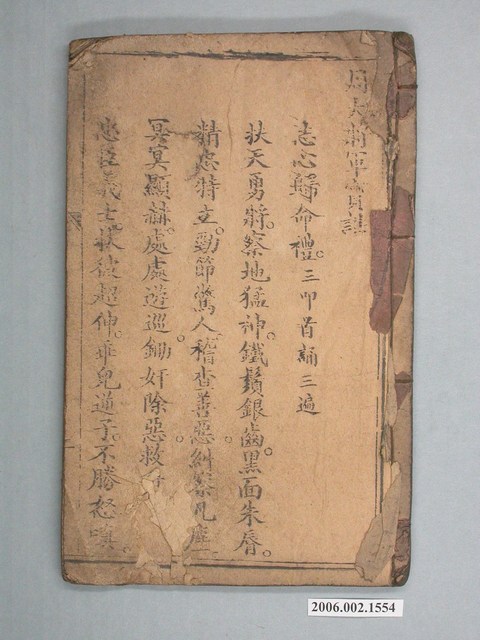 周大將軍寶誥
志心歸命禮。三叩首誦三遍
扶天勇將。察地猛神。鐵鬚銀齒。黑面朱唇。
精忠特立。勁節驚人。稽查善惡。糾察凡塵。
冥冥顯赫。處處遊巡。鋤奸除惡。救
忠臣義士。扶彼超伸。乖兒逆子。不勝怒嗔。
2006.002.1554